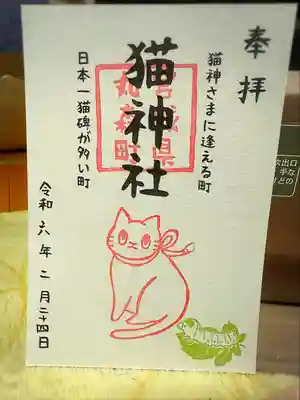 奉拝
猫神さまに逢える町
宮城県
丸森町
猫神社
日本一猫碑が多い町
令和六年二月二十四日